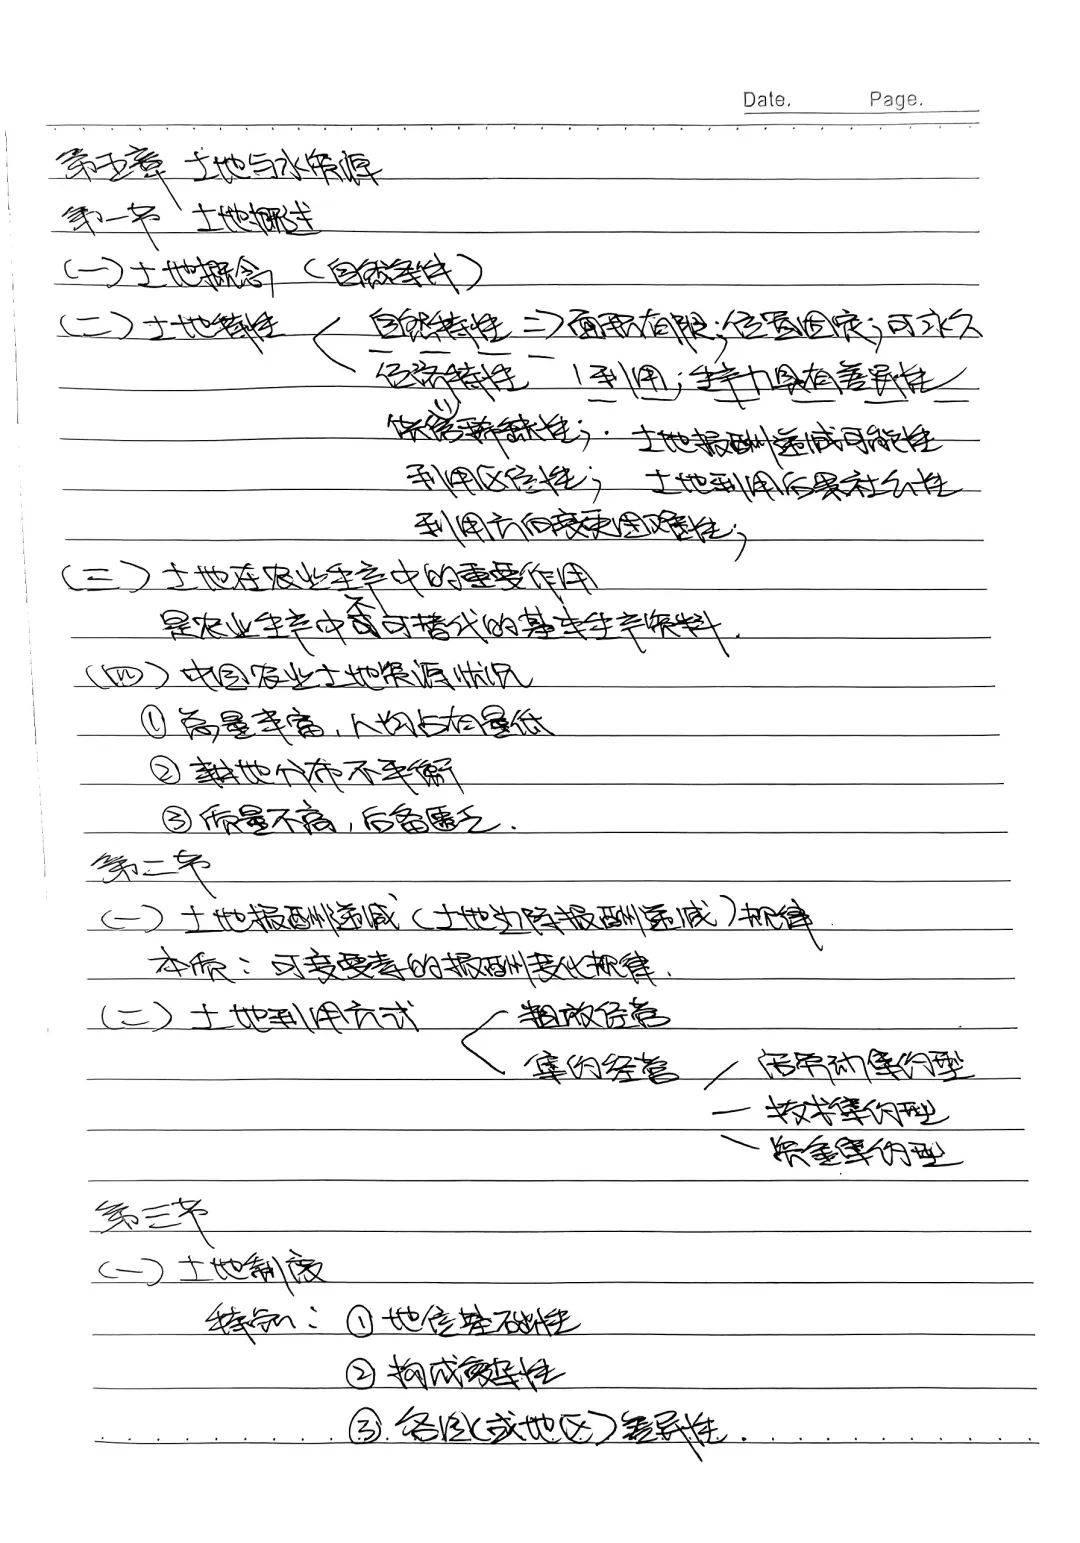 Date.    Page.
第五章 土地与水资源
第一节 土地概述
(一)土地概念 (自然条件)
(二)土地特性 自然特性 => 面积有限;位置固定;可永久
经济特性 利用;生产力具有差异性
供给稀缺性; 土地报酬递减可能性
利用区位性; 土地利用后果社会性
利用方向变更困难性;
(三)土地在农业生产中的重要作用
是农业生产中不可替代的基本生产资料.
(四)中国农业土地资源状况
① 总量丰富,人均占有量低
② 耕地分布不平衡
③ 质量不高,后备匮乏.
第二节
(一)土地报酬递减(土地边际报酬递减)规律.
本质:可变要素的报酬变化规律.
(二)土地利用方式 粗放经营
集约经营 活劳动集约型
技术集约型
资金集约型
第三节
(一)土地制度
特点: ① 地位基础性
② 构成复杂性
③ 各国(或地区)差异性.